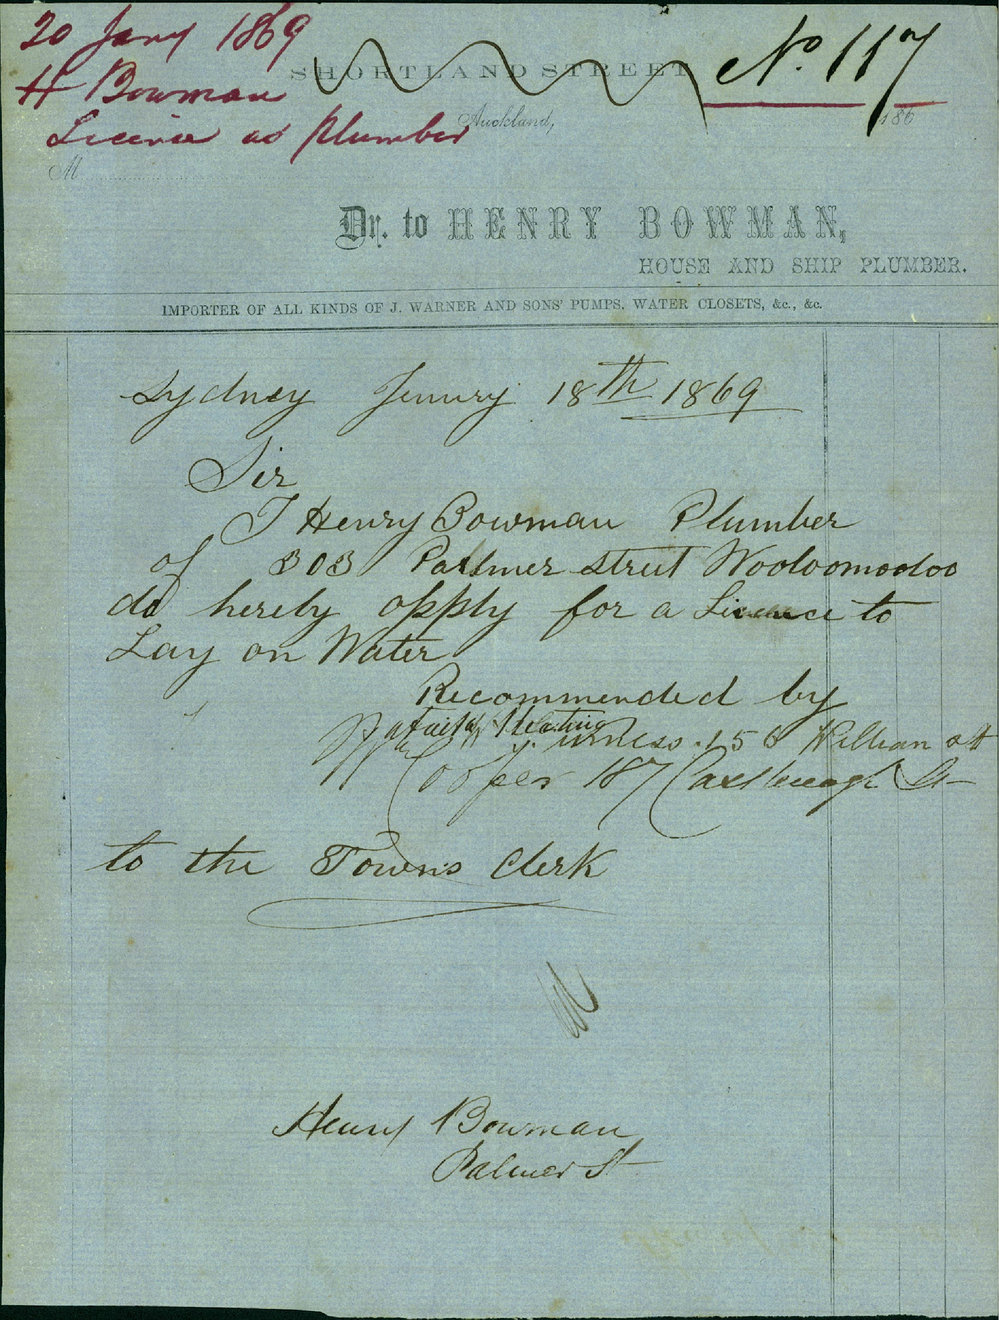 20 Jany 1869
H Bowman
Licence as Plumber
No. 117
SHORTLAND STREET
Auckland, 186
M
Dr. to HENRY BOWMAN,
HOUSE AND SHIP PLUMBER.
IMPORTER OF ALL KINDS OF J. WARNER AND SONS' PUMPS, WATER CLOSETS, &c., &c.
Sydney Jenury 18th 1869
Sir
I Henry Bowman Plumber
of 303 Palmer Street Wooloomooloo
do hereby apply for a Licence to
Lay on Water
Recommended by
William st
Cooper 187 St
to the Towns Clerk
Henry Bowman
Palmer St